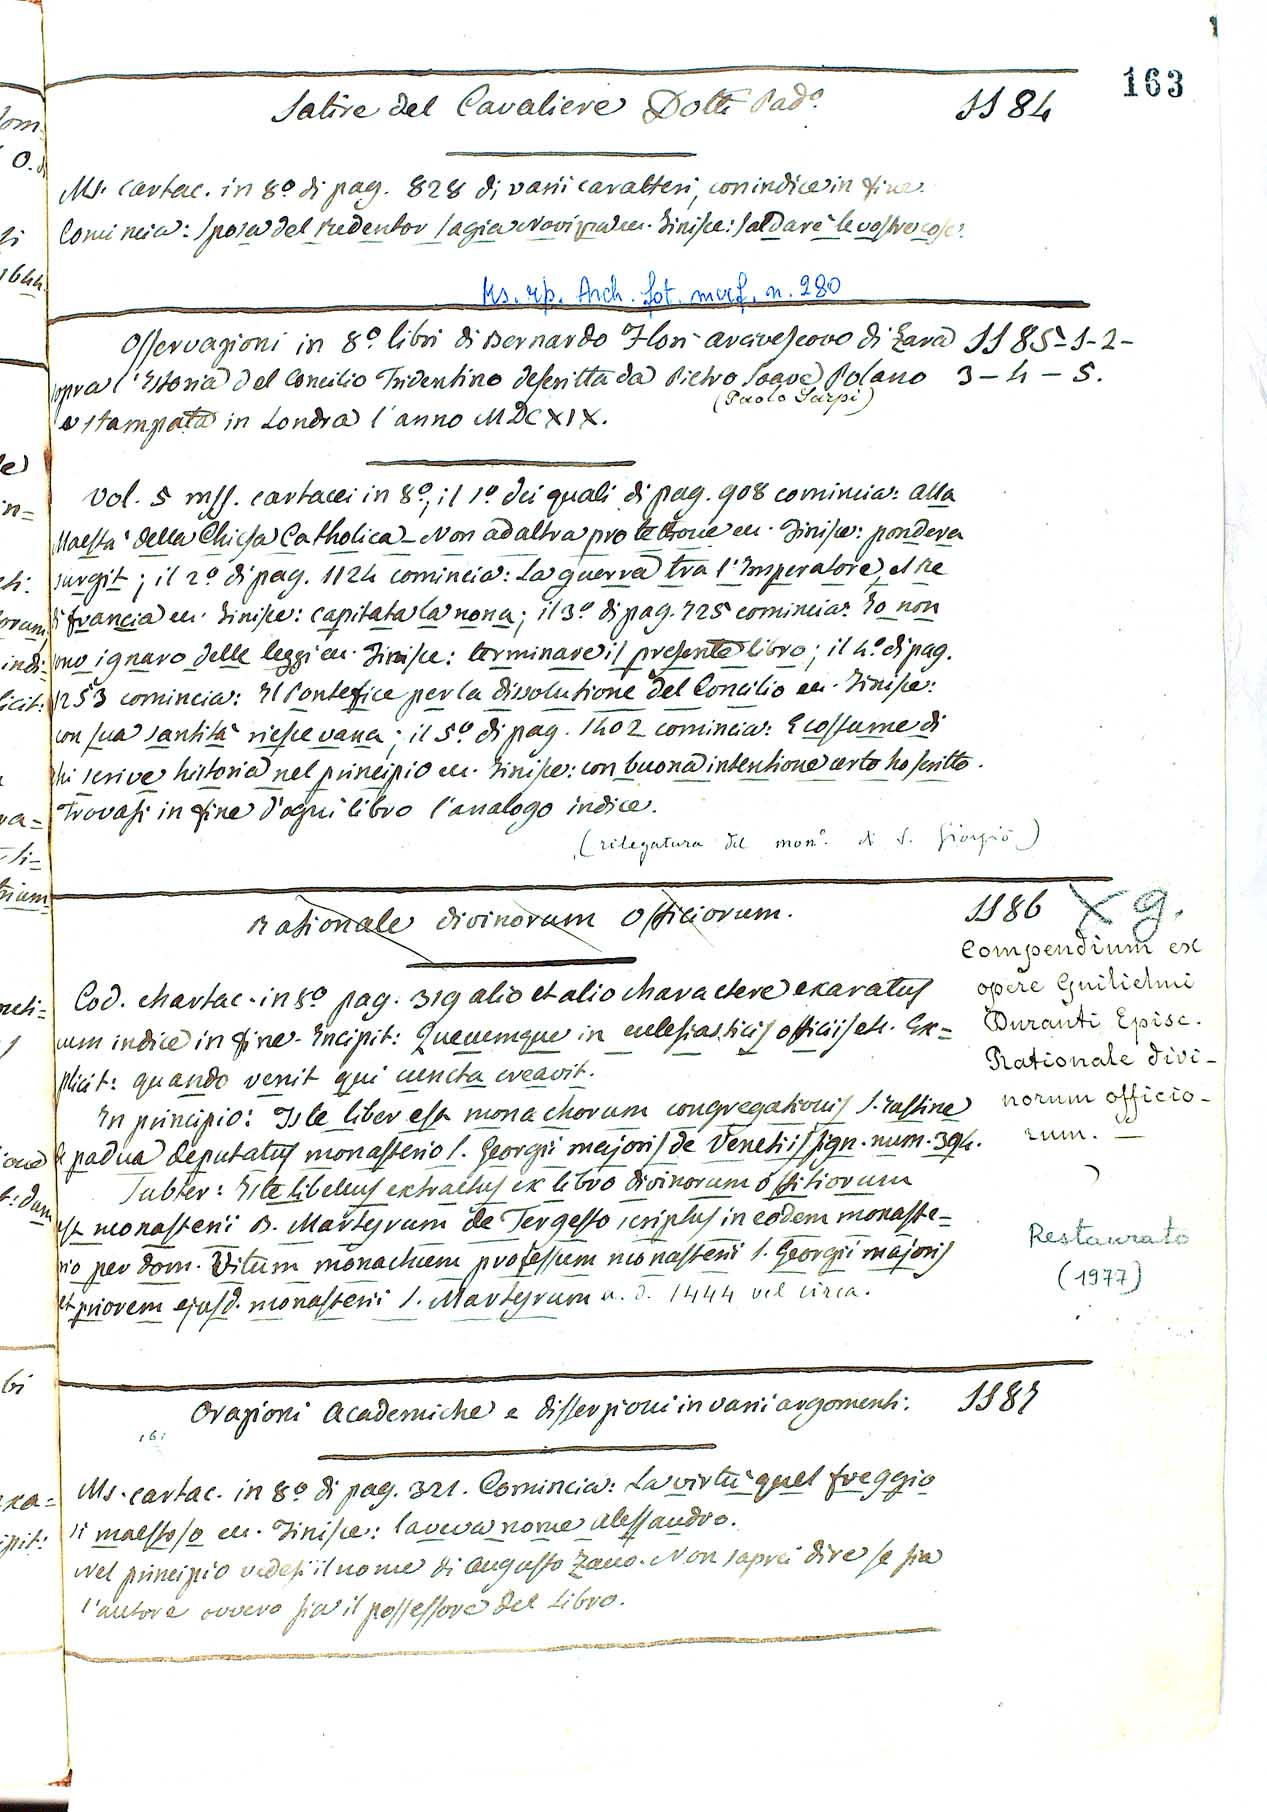 163
Satire del Cavaliere Dotti Pad.º 1184
Ms. cartac. in 8º di pag. 828 di varii caratteri, con indice in fine.
Comincia: sposa del Redentor sagia ec. Finisce: saldare le vostre cose.
Ms. rp. Arch. fot. mof. n. 280
Osservazioni in 8º libri di Bernardo Flori arcivescovo di Zara 1185-1-2-
sopra l'Istoria del Concilio Tridentino descritta da Pietro Soave Polano 3-4-5.
(Paolo Sarpi)
e stampata in Londra l'anno MDCXIX.
Vol. 5 mss. cartacei in 8º, il 1º dei quali di pag. 908 comincia: alla
Maestà della Chiesa Catholica - Non ad altra protettione ec. Finisce: pondera
surgit; il 2º di pag. 1124 comincia: La guerra tra l'Imperatore, el re
di francia ec. Finisce: capitata la nona; il 3º di pag. 725 comincia: Io non
sono ignaro delle leggi ec. Finisce: terminare il presente libro; il 4º di pag.
1253 comincia: Il Pontefice per la dissolutione del Concilio ec. Finisce:
con sua santità riesce vana; il 5º di pag. 1402 comincia: E costume di
chi scrive historia nel principio ec. Finisce: con buona intentione certo ho scritto.
Trovasi in fine d'ogni libro l'analogo indice.
(rilegatura del monº. di S. Giorgio)
Rationale divinorum Officiorum. 1186 X g.
Compendium ex
opere Guilielmi
Duranti Episc.
Rationale divi-
norum officio-
rum.
Cod. chartac. in 8º pag. 319 alio et alio charactere exaratus
cum indice in fine. Incipit: Quecumque in ecclesiasticis officiis etc. Ex=
plicit: quando venit qui cuncta creavit.
In principio: Iste liber est monachorum congregationis S. Iustine
de padua deputatus monasterio S. Georgii majoris de Venetiis sign. num. 394.
Subter: Iste libellus extractus ex libro divinorum offitiorum
est monasterii B. Martyrum de Tergesto scriptus in eodem monaste=
rio per dom. Vitum monachum professum monasterii S. Georgii majoris
et priorem ejusd. monasterii S. Martyrum a. d. 1444 vel circa.
Restaurato
(1977)
Orazioni Academiche e dissertioni in varii argomenti. 1187
Ms. cartac. in 8º di pag. 321. Comincia: La virtù quel freggio
sì maestoso ec. Finisce: l'aveva nome Alessandro.
Nel principio vedesi il nome di Augusto Zano. Non saprei dire se sia
l'autore ovvero sia il possessore del Libro.